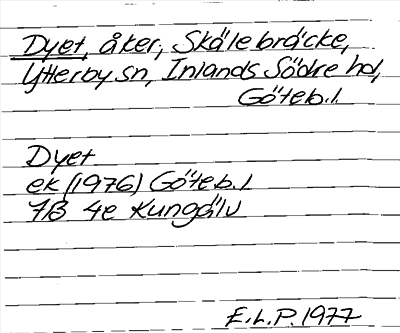 Dyet, åker, Skålebräcke,
Ytterby sn, Inlands Södre hd,
Göteb.l.
Dyet
ek (1976) Göteb.l
7B 4e Kungälv
E.L.P. 1977